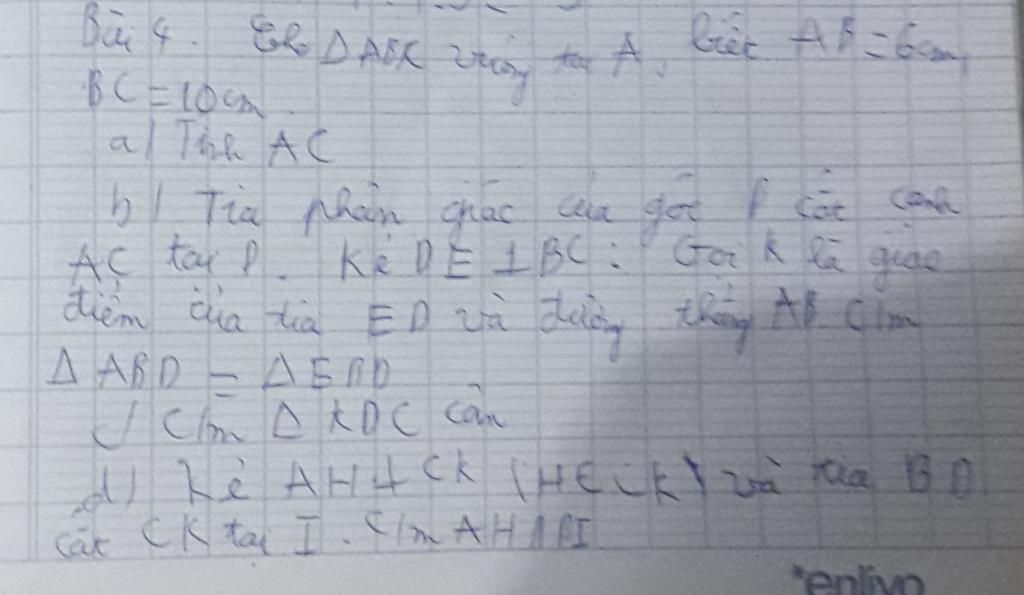 Bài 4. Cho ΔABC vuông tại A. biết AB = 6cm,
BC = 10cm
a/ Tính AC
b/ Tia phân giác của góc B cắt cạnh
AC tại D. Kẻ DE ⊥ BC. Gọi K là giao
điểm của tia ED và đường thẳng AB. C/m
ΔABD = ΔEBD
c/ C/m ΔKDC cân
d/ Kẻ AH ⊥ CK (H ∈ CK) và tia BD
cắt CK tại I. C/m AH // BI
*enlivn